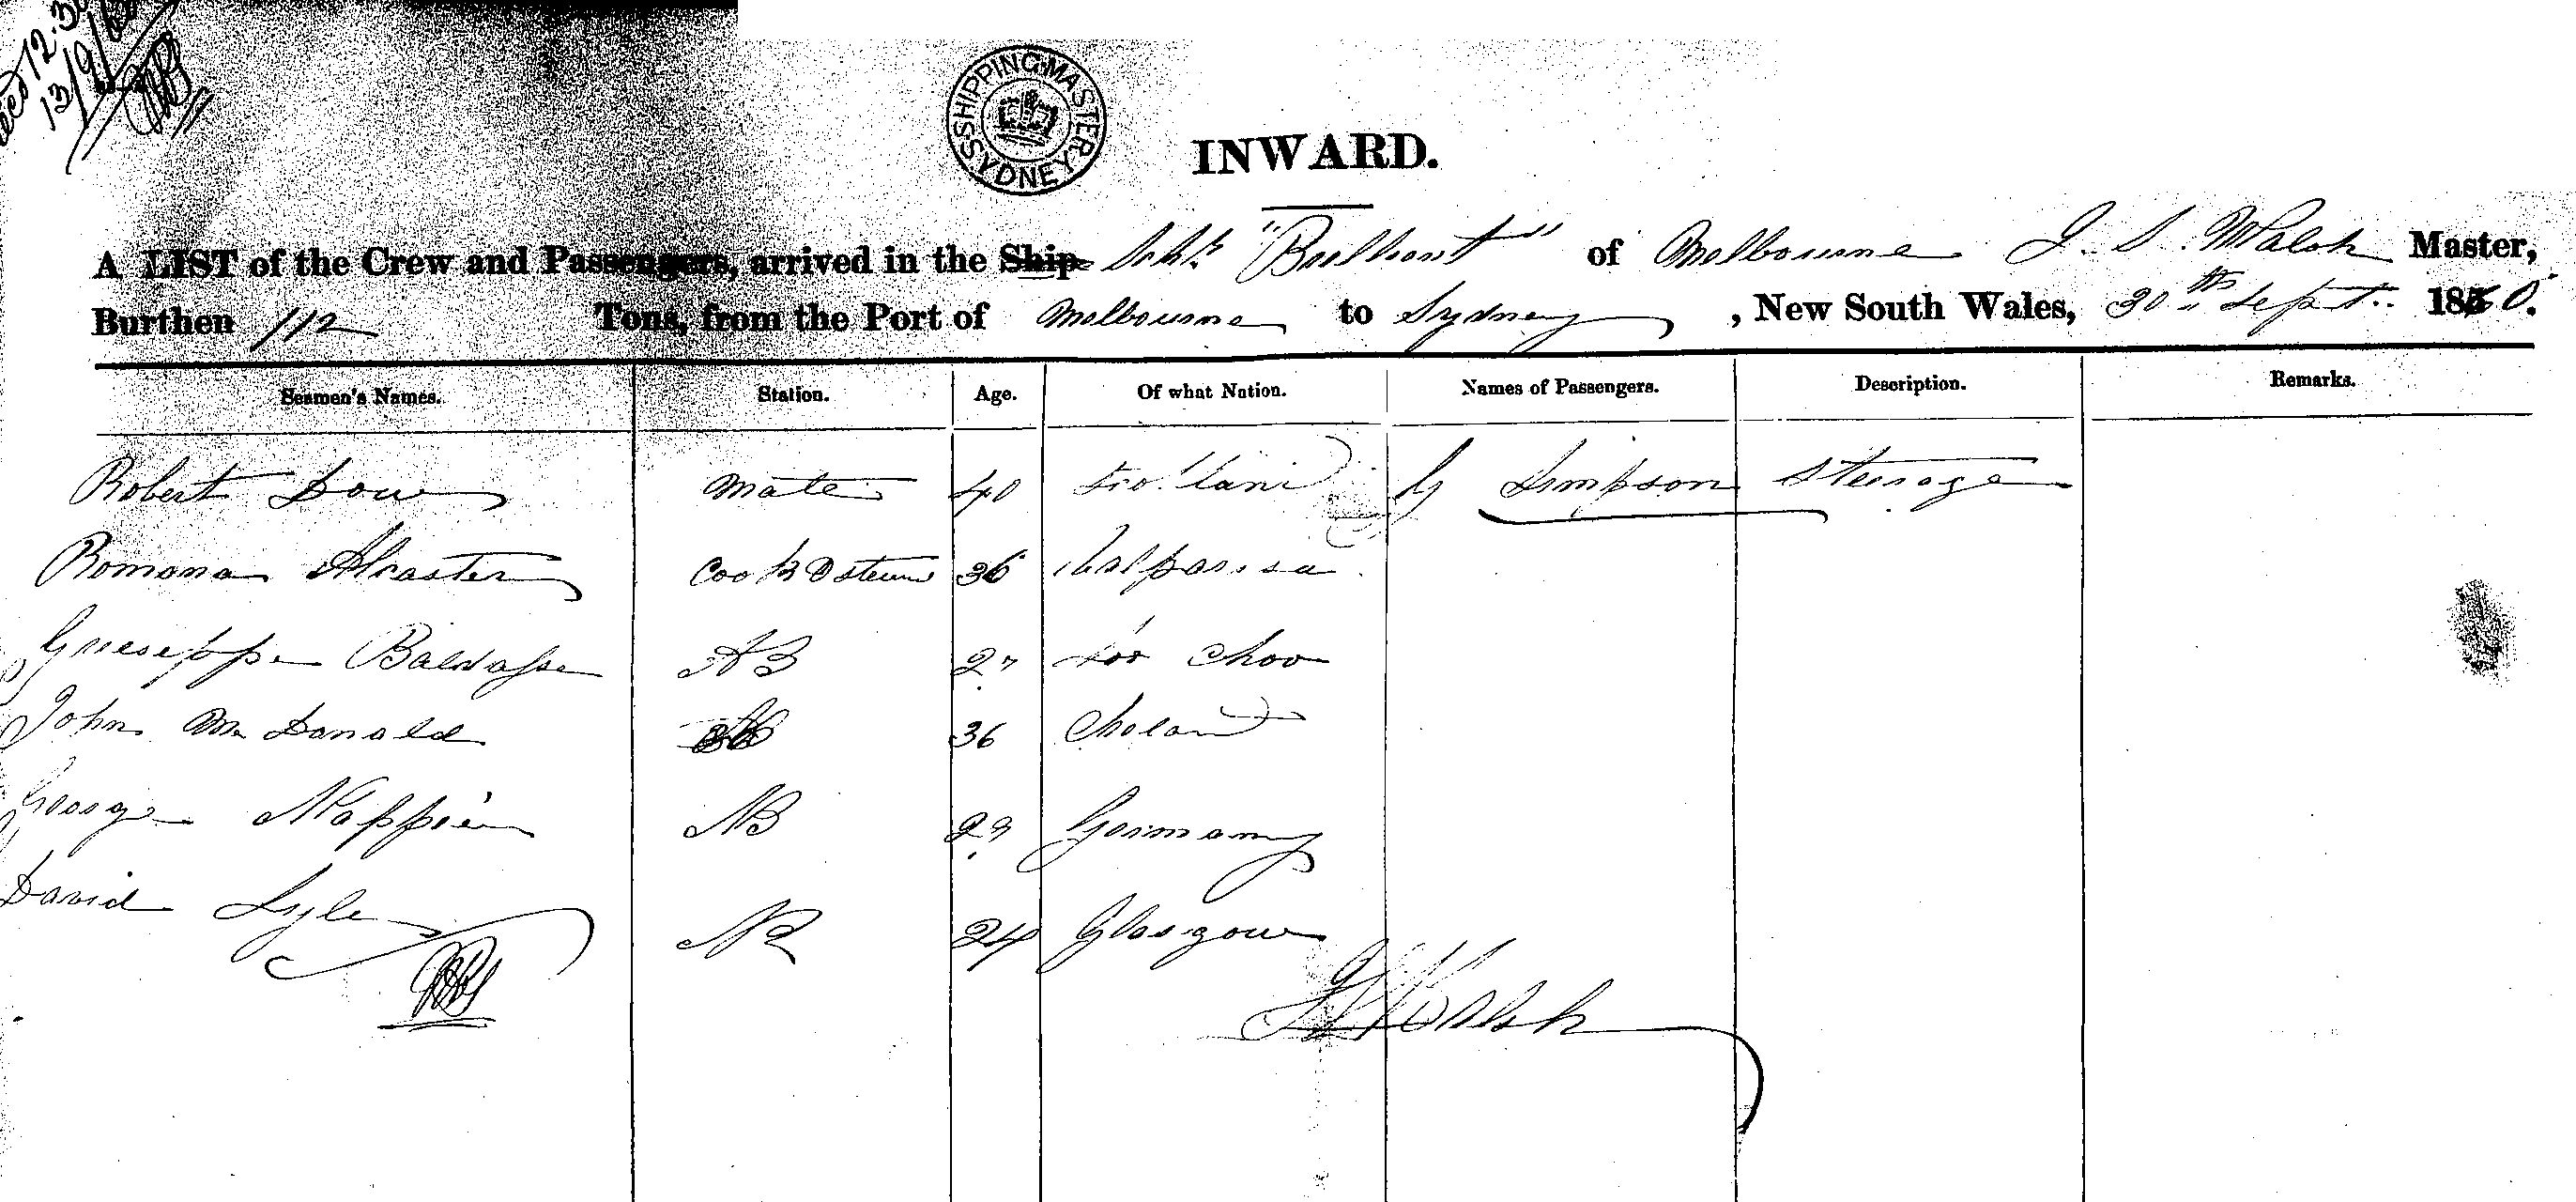 12.30
13/9/60
SHIPPING MASTER SYDNEY
INWARD.
A LIST of the Crew and Passengers, arrived in the Ship "Brilliant" of Melbourne J. S. Walsh Master,
Burthen 112 Tons, from the Port of Melbourne to Sydney, New South Wales, 30th Sept. 1860.
Seamen's Names. Station. Age. Of what Nation. Names of Passengers. Description. Remarks.
Robert Dow Mate 40 Scotland G Simpson Steerage
Romana Alcaster Cook & Steward 36 Valparisa
Guiseppe 27
John Mc Donald 36
George Nappier AB 23 Germany
David Lyle AB 24 Glasgow
J S Walsh